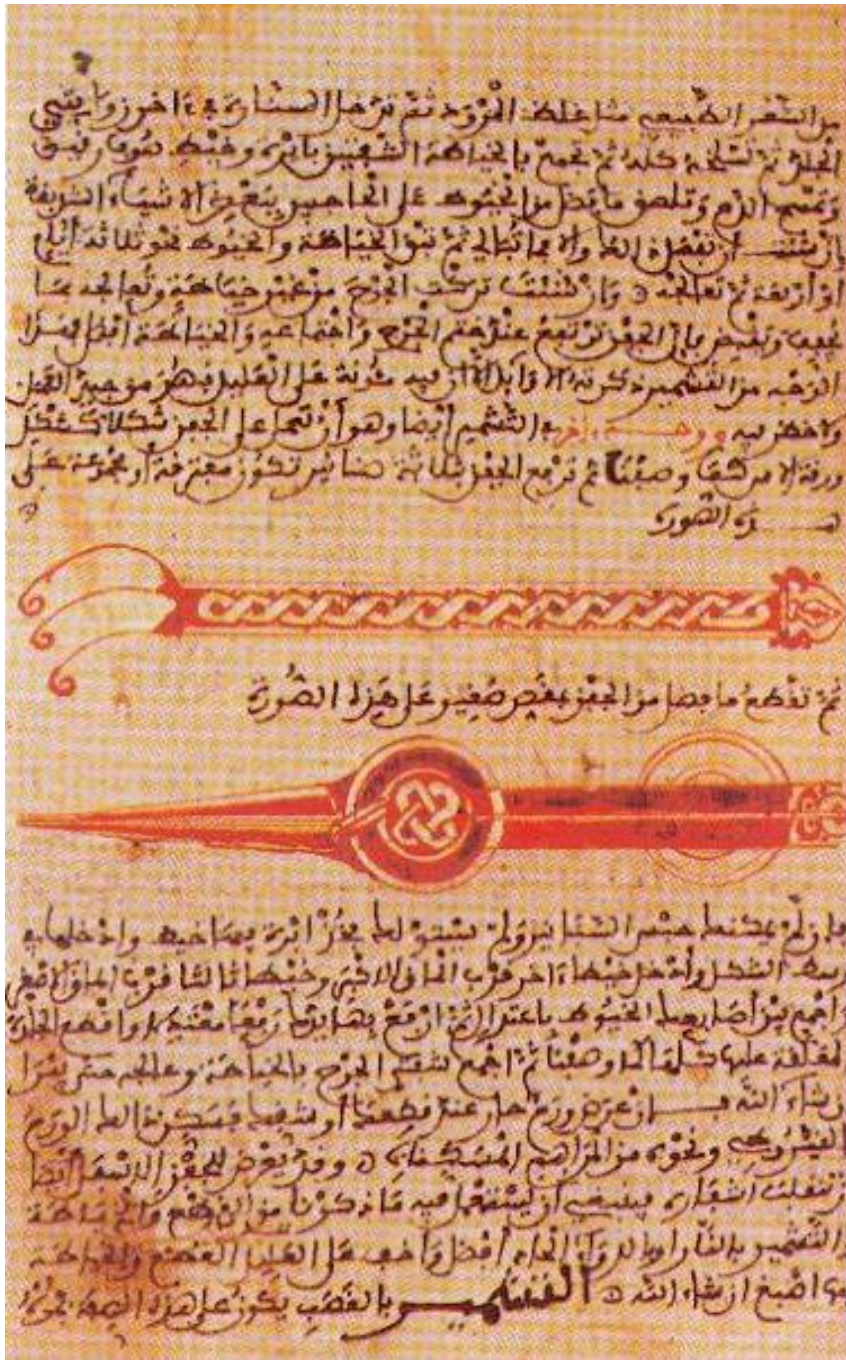 من الشعر الطبيعي مثل غلظ المرود ثم تدخل السنارة في اخر زوايتي
الجلد ثم تسلخه كله ثم تجمع بالخياطة الشفتين بابرة وخيط صوف رقيق
وتمسح الدم وتلصق ما فضل من الخيوط على الحاجبين ببعض الاشياء
ان شئت ان تفعل ذلك والا فما تبالي ثم تبق الخياطة والخيوط نحو ثلاثة ايام
او اربعة ثم تعالجه وان شئت تركت الجرح من غير خياطة وتعالجه بما
يجفف ويقبض فان الجفن يرتفع عند ختم الجرح واجتماعه والخياطة افضل فهذا
الوجه من التشمير ذكرته الاوايل الا ان فيه مئونة على العليل وهو من جيد العمل
ولا خطر فيه ووجه اخر في التشمير ايضا وهو ان تعلم على الجفن شكلا كشكل
ورقة وصفنا ثم ترفع الجفن بثلاثة صنانير تكون مفترقة او مجموعة على
هذه الصورة
ثم تقطع ما فضل من الجفن بمقص صغير على هذه الصورة
فان لم يمكنك حبس الصنانير ولم يستو لك فخذ ابرة فيها خيط وادخلها في
وسط الشكل وادخل خيطا اخر قرب الماق الاكبر وخيطا ثالثا قرب الماق الاصغر
واجمع بين اصابعك الخيوط باعتدال ثم ارفع بها يدك رفعا معتدلا واقطع الجلدة
المعلمة عليها كلها كما وصفنا ثم اجمع شفتي الجرح بالخياطة وعالجه حتى يبرا
ان شاء الله فان عرض ورم حار عند قطعك او شقك فسكن ذلك الورم
بالقيروطي ونحوه من المراهم المسكنة وقد يعرض للجفن الاسفل ايضا
ان تنقلب اشفاره فينبغي ان يستعمل فيه ما ذكرنا من القطع والخياطة
والتشمير بالنار او بالدواء الحاد افضل واخف على العليل القطع والخياطة
ان شاء الله التشمير بالقصب يكون على هذه الصفة